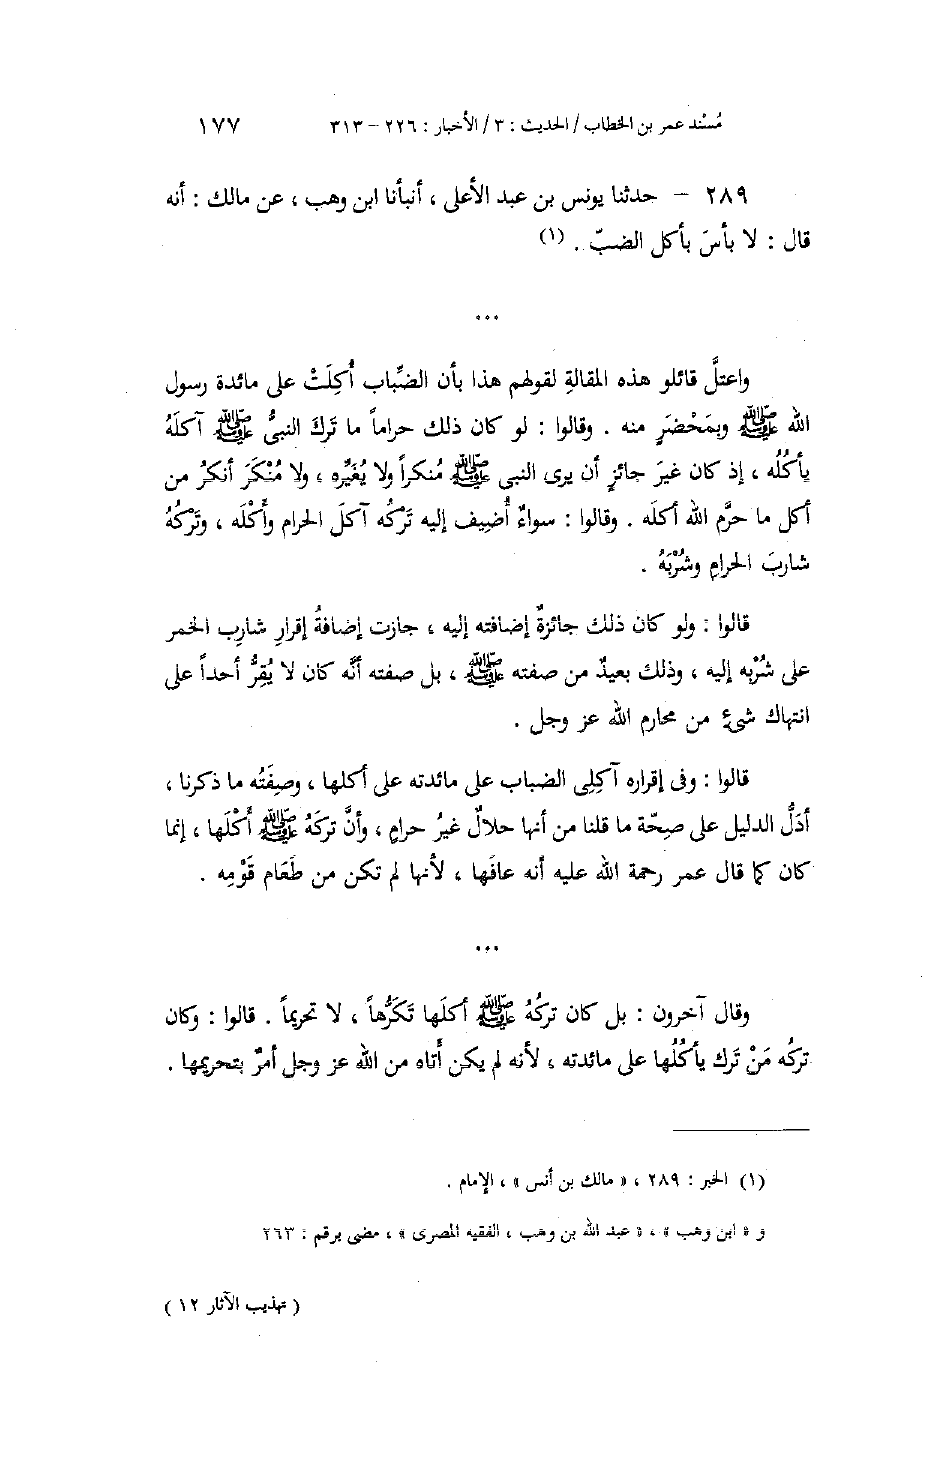 مُسْند عمر بن الخطاب / الحديث : ٣ / الأخبار : ٢٢٦ – ٣١٣ ١٧٧
٢٨٩ – حدثنا يونس بن عبد الأعلى ، أنبأنا ابن وهب ، عن مالك : أنه
قال : لا بأسَ بأكل الضبّ . (١)
...
واعتلَّ قائلو هذه المقالةِ لقولهم هذا بأن الضِّباب أُكِلَتْ على مائدة رسول
الله ﷺ وبمَحْضَرٍ منه . وقالوا : لو كان ذلك حراماً ما تَركَ النبىُّ ﷺ آكلَهُ
يأكُلُه ، إذ كان غيرَ جائزٍ أن يرى النبى ﷺ مُنكراً ولا يُغَيِّره ، ولا مُنْكَرَ أنكرُ من
أكل ما حرَّم الله أكلَه . وقالوا : سواءٌ أُضيف إليه تَرْكُه آكلَ الحرام وأَكْلَه ، وتَرْكُهُ
شاربَ الحرامِ وشُرْبَهُ .
قالوا : ولو كان ذلك جائزةٌ إضافته إليه ، جازت إضافةُ إقرارِ شارِب الخمر
على شُرْبه إليه ، وذلك بعيدٌ من صفته ﷺ ، بل صفته أنَّه كان لا يُقِرُّ أحداً على
انتهاك شىءٍ من محارم الله عز وجل .
قالوا : وفى إقراره آكِلِى الضباب على مائدته على أكلها ، وصِفَتُه ما ذكرنا ،
أدَلُّ الدليل على صِحّة ما قلنا من أنها حلالٌ غيرُ حرامٍ ، وأنَّ تركَهُ ﷺ أَكْلَها ، إنما
كان كما قال عمر رحمة الله عليه أنه عافَها ، لأنها لم تكن من طَعَام قَوْمِه .
...
وقال آخرون : بل كان تركُهُ ﷺ أكلَها تَكَرُّهاً ، لا تحريماً . قالوا : وكان
تركُه مَنْ تَرك يأكُلُها على مائدته ، لأنه لم يكن أَتاه من الله عز وجل أمرٌ بتحريمها .
(١) الخبر : ٢٨٩ ، « مالك بن أنس » ، الإمام .
و « ابن وهب » ، « عبد الله بن وهب ، الفقيه المصرى » ، مضى برقم : ٢٦٣
( تهذيب الآثار ١٢ )